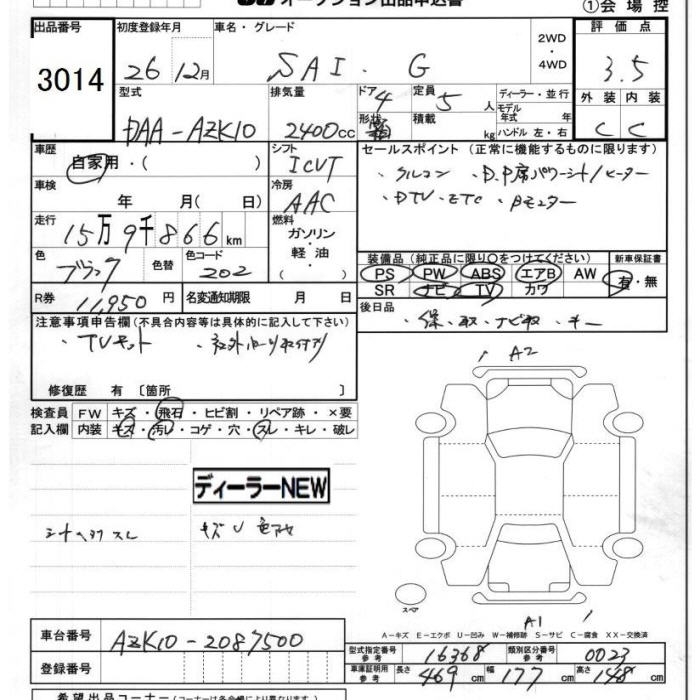 オークション出品申込書
①会場控
出品番号 初度登録年月 車名・グレード 評価点
3014 26 12月 SAI. G 2WD・4WD 3.5
型式 排気量 ドア 4 定員 5 人 ディーラー・並行 外装 内装
DAA-AZK10 2400cc 形状 積載 kg モデル年式 年 ハンドル 左・右 C C
車歴 シフト セールスポイント (正常に機能するものに限ります)
自家用・( ) ICVT ・クルコン ・D.P席パワーシート/ヒーター
車検 冷房 ・DTV ・ETC ・Bモニター
年 月( 日) AAC
走行 燃料
15万9千866km ガソリン・軽油・
色 色替 色コード 装備品 (純正品に限り○をつけてください) 新車保証書
ブラック 202 PS PW ABS エアB AW 有・無
SR ナビ TV カワ
R券 11,950円 名変通知期限 月 日 後日品
・保・取・ナビ取・キー
注意事項申告欄 (不具合内容等は具体的に記入して下さい)
・TVキット
修復歴 有 〔箇所 〕
A2
検査員 FW キズ・飛石・ヒビ割・リペア跡・×要
記入欄 内装 キズ・汚レ・コゲ・穴・スレ・キレ・破レ
ディーラーNEW
スレ キズ
スペア
A1
A-キズ E-エクボ U-凹み W-補修跡 S-サビ C-腐食 XX-交換済
車台番号 AZK10-2087500
型式指定番号 参考 16368 類別区分番号 参考 0023
登録番号
車庫証明用 参考 長さ 469cm 幅 177cm 高さ 148cm
希望出品コーナー